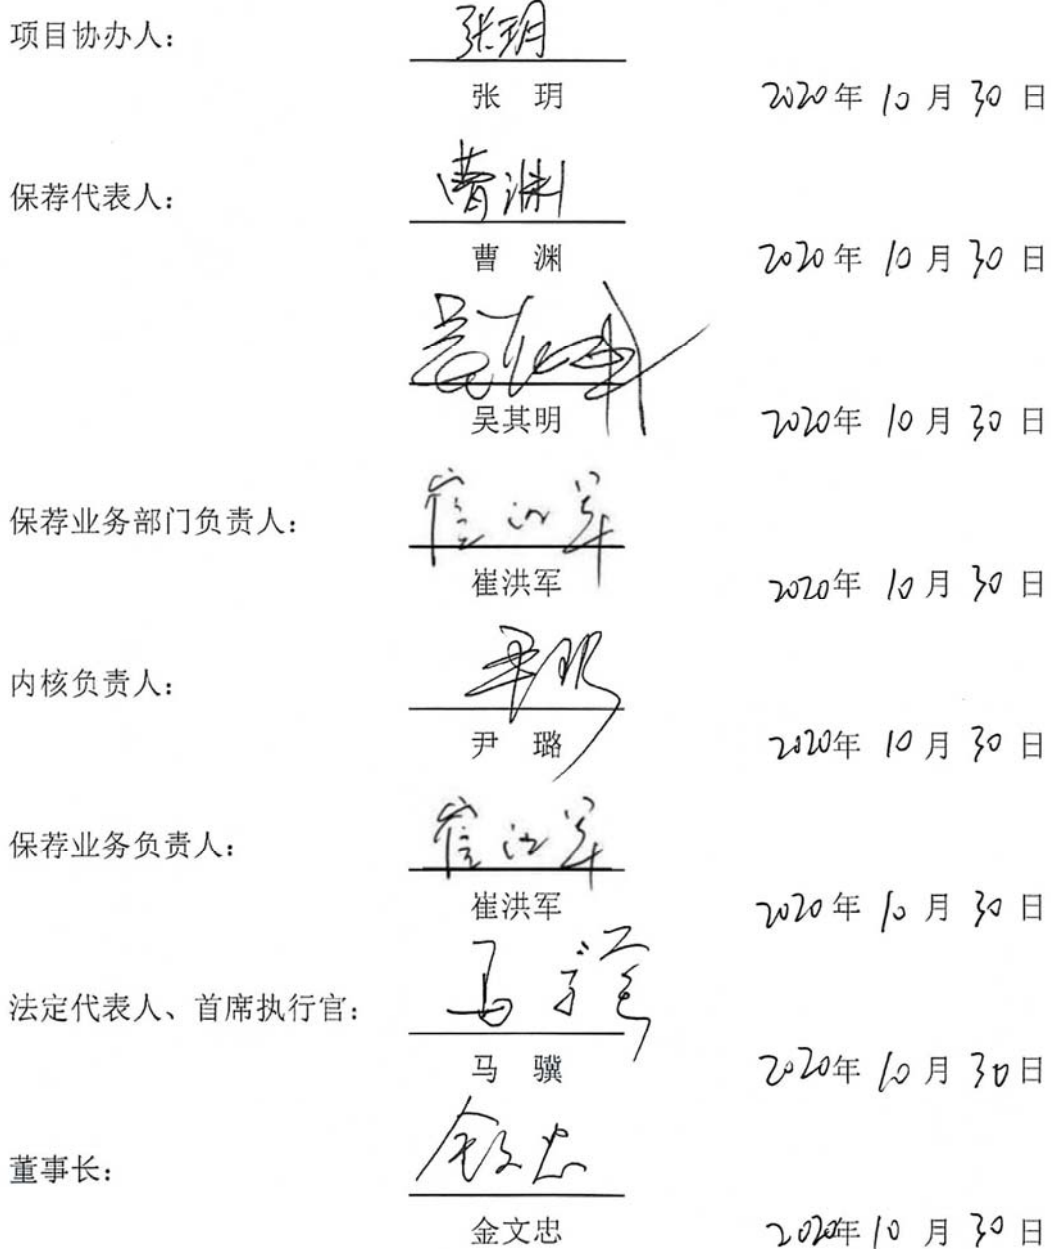 项目协办人：
张玥
张 玥 2020年 10 月 30 日
保荐代表人：
曹渊
曹 渊 2020年 10 月 30 日
吴其明
吴其明 2020年 10 月 30 日
保荐业务部门负责人：
崔洪军
崔洪军 2020年 10 月 30 日
内核负责人：
尹璐
尹 璐 2020年 10 月 30 日
保荐业务负责人：
崔洪军
崔洪军 2020年 10 月 30 日
法定代表人、首席执行官：
马骥
马 骥 2020年 10 月 30 日
董事长：
金文忠
金文忠 2020年 10 月 30 日